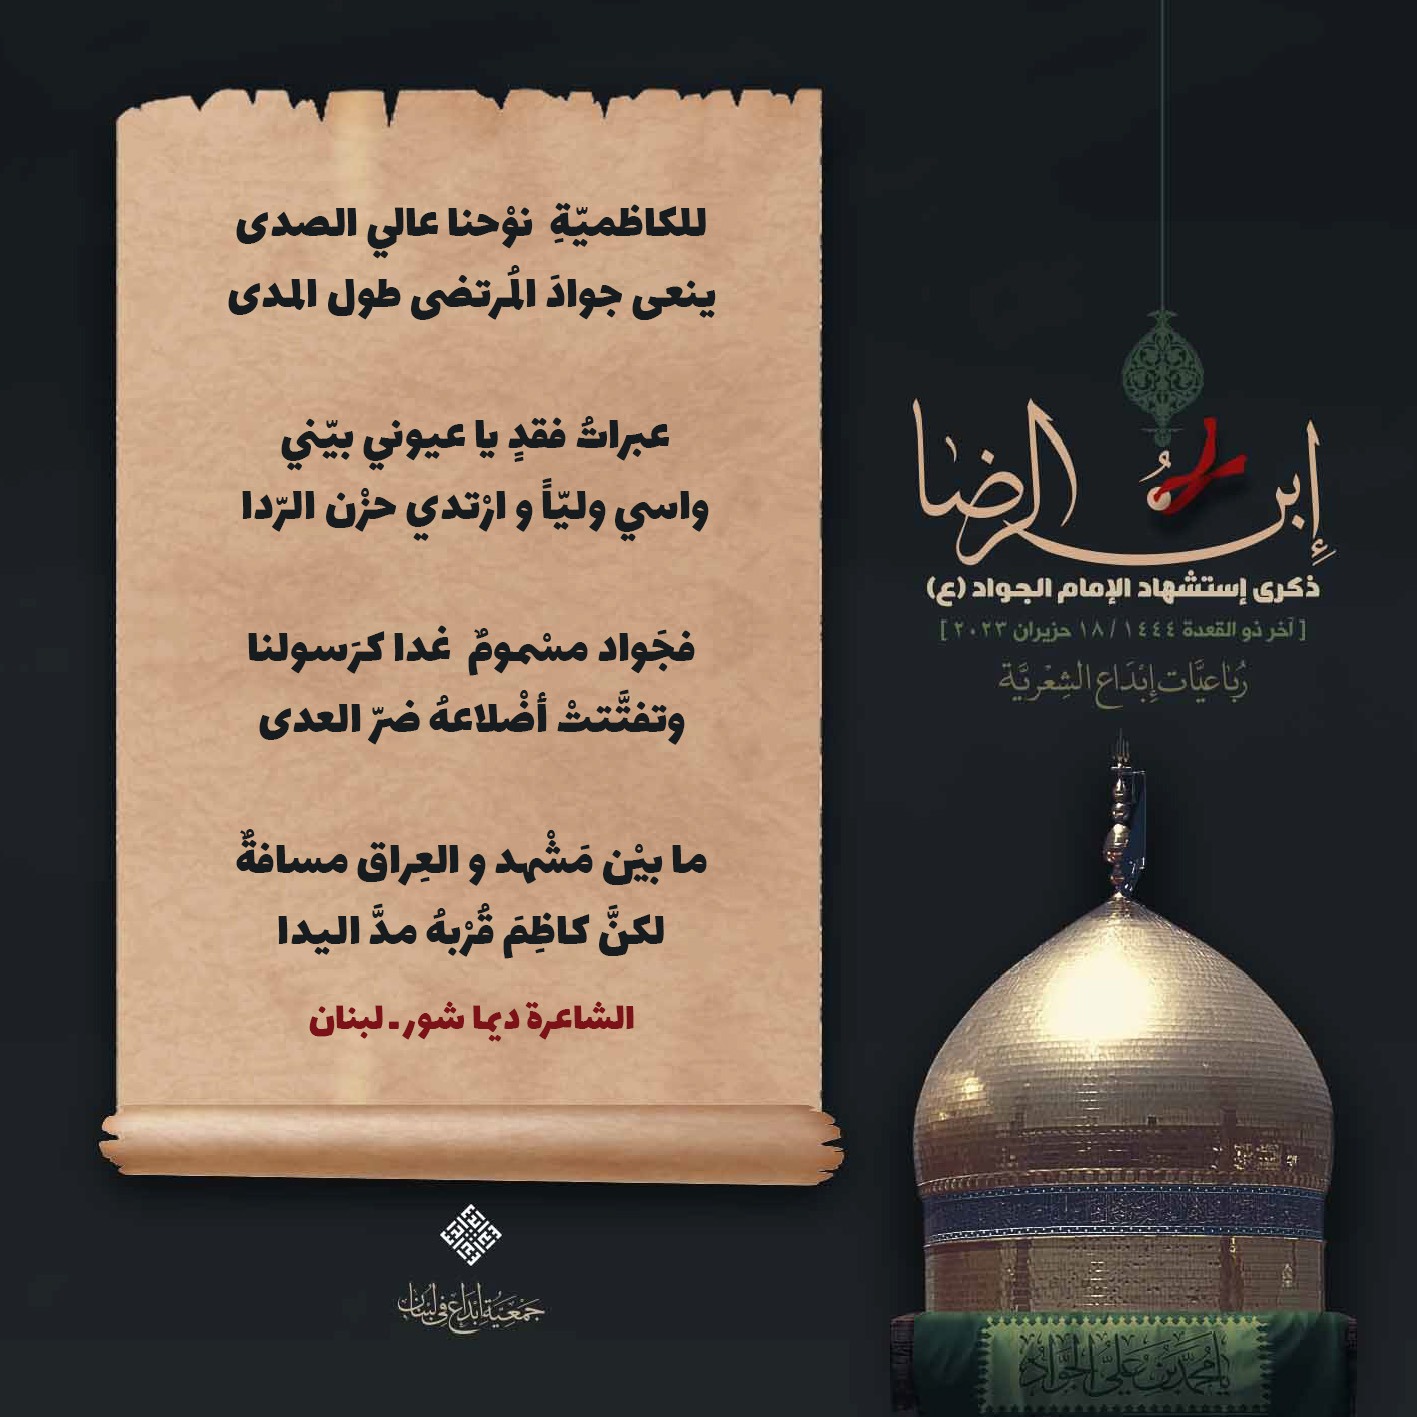 للكاظميّةِ نوْحنا عالي الصدى
ينعى جوادَ المُرتضى طول المدى
عبراتُ فقدٍ يا عيوني بيّني
واسي وليّاً و ارْتدي حزْن الرّدا
فجَواد مسْمومٌ غدا كرَسولنا
وتفتَّتتْ أضْلاعهُ ضرّ العدى
ما بيْن مَشْهد و العِراق مسافةٌ
لكنَّ كاظِمَ قُرْبهُ مدَّ اليدا
الشاعرة ديما شور ـ لبنان
إبن الرضا
ذكرى إستشهاد الإمام الجواد (ع)
[ آخر ذو القعدة ١٤٤٤ / ١٨ حزيران ٢٠٢٣ ]
رُبَاعيَّات إِبْدَاع الشِعْريَّة
جَمْعِيَّة إبْدَاع في لبنان
يا محمّد بن عليّ الجوادُ